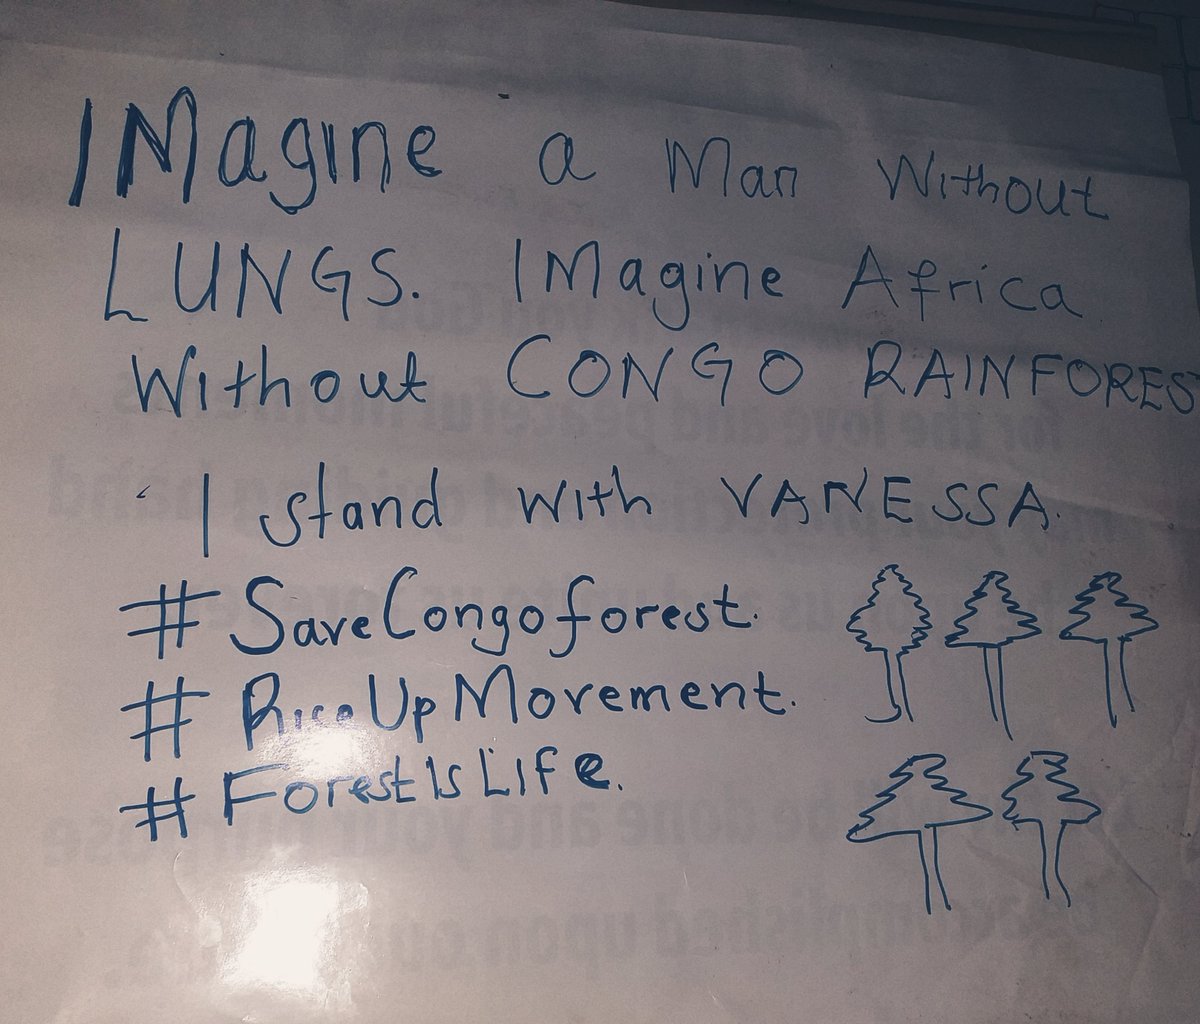 IMagine a Man Without
LUNGS. IMagine Africa
Without CONGO RAINFOREST
I stand with VANESSA.
#SaveCongoforest.
#RiseUpMovement.
#ForestIsLife.